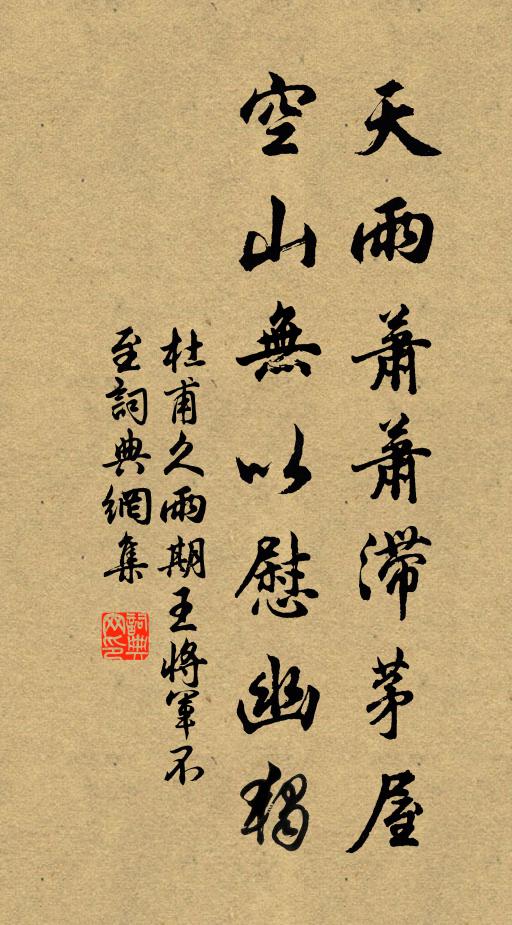 天雨蕭蕭滯茅屋
空山無以慰幽獨
杜甫久雨期王將軍不
至詞典網集
詞典
網印